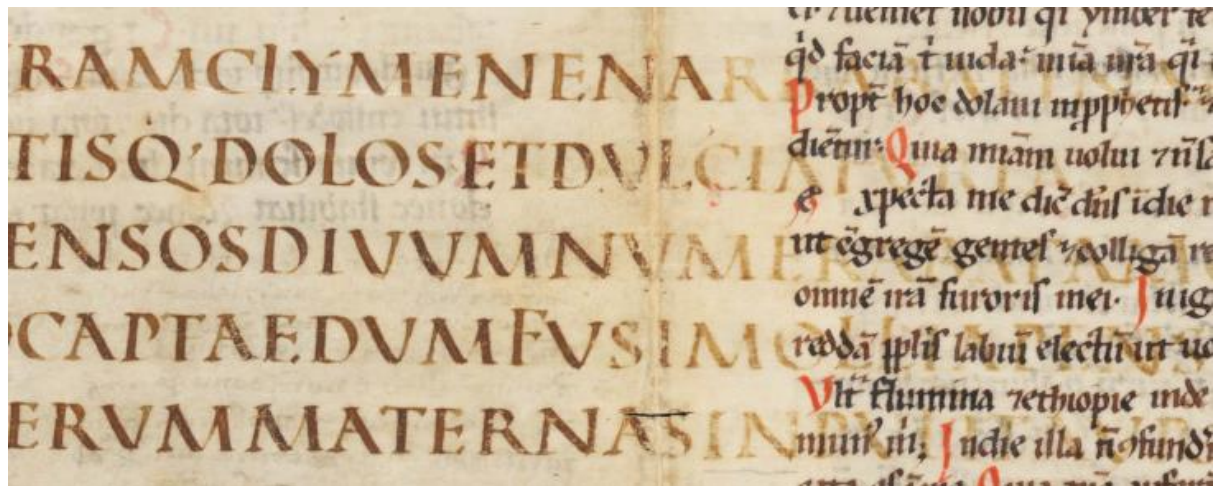 RAMCLYMENENAR
TISQ·DOLOSETDVLCIA
ENSOSDIVVMNVMER
CAPTAEDVMFVSIMO
ERVMMATERNASIN
ueniet nobis qi ymber te
qd faciā t̄ iuda: mīa ūrā qi
Propt̄ hoc dolaui in pphetis
Quia miām uolui ⁊ n̄ sa
expecta me dic̄ dn̄s ī die r
ut c̄gregē gentes ⁊ colligā re
omnē irā furoris mei. In ig
reddā pplis labiū electū ut uo
Vlt̄ flumina ⁊ethiopie inde
mun' m̄; In die illa n̄ ɔfund
Quia